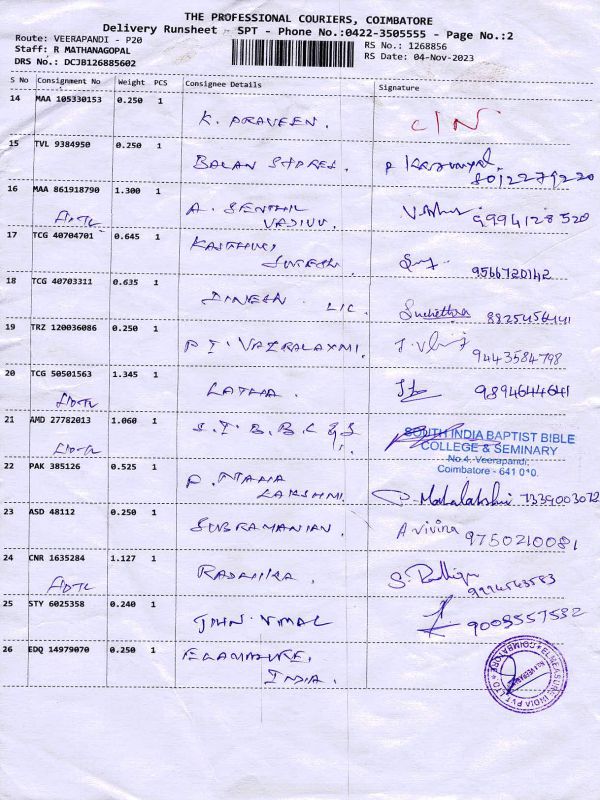 THE PROFESSIONAL COURIERS, COIMBATORE
Delivery Runsheet - SPT - Phone No.:0422-3505555 - Page No.:2
Route: VEERAPANDI - P20
RS No.: 1268856
Staff: R MATHANAGOPAL
RS Date: 04-Nov-2023
DRS No.: DCJB126885602
S No Consignment No Weight PCS Consignee Details Signature
14 MAA 105330153 0.250 1
K. PRAVEEN.
15 TVL 9384950 0.250 1
BALAN STORES. 8012279220
16 MAA 861918790 1.300 1
A. SENTHIL
VADIVU 9994128520
17 TCG 40704701 0.645 1
SURESH 9566720142
18 TCG 40703311 0.635 1
DINESH LIC. 8825456441
19 TRZ 120036086 0.250 1
P. T. VAZRALAXMI. 9443584798
20 TCG 50501563 1.345 1
LATHA. 9894644641
21 AMD 27782013 1.060 1
S. I. B. B. C & S.
SOUTH INDIA BAPTIST BIBLE
COLLEGE & SEMINARY
No.4, Veerapandi,
Coimbatore - 641 0*0.
22 PAK 385126 0.525 1
P. MAHA
LAKSHMI. P. Mahalakshmi 7339003072
23 ASD 48112 0.250 1
SUBRAMANIAN. A vivina 9750210081
24 CNR 1635284 1.127 1
RADHIKA.
25 STY 6025358 0.240 1
JOHN VIMAL 9003557532
26 EDQ 14979070 0.250 1
INDIA.
ELMEASURE INDIA PVT LTD
COIMBATORE